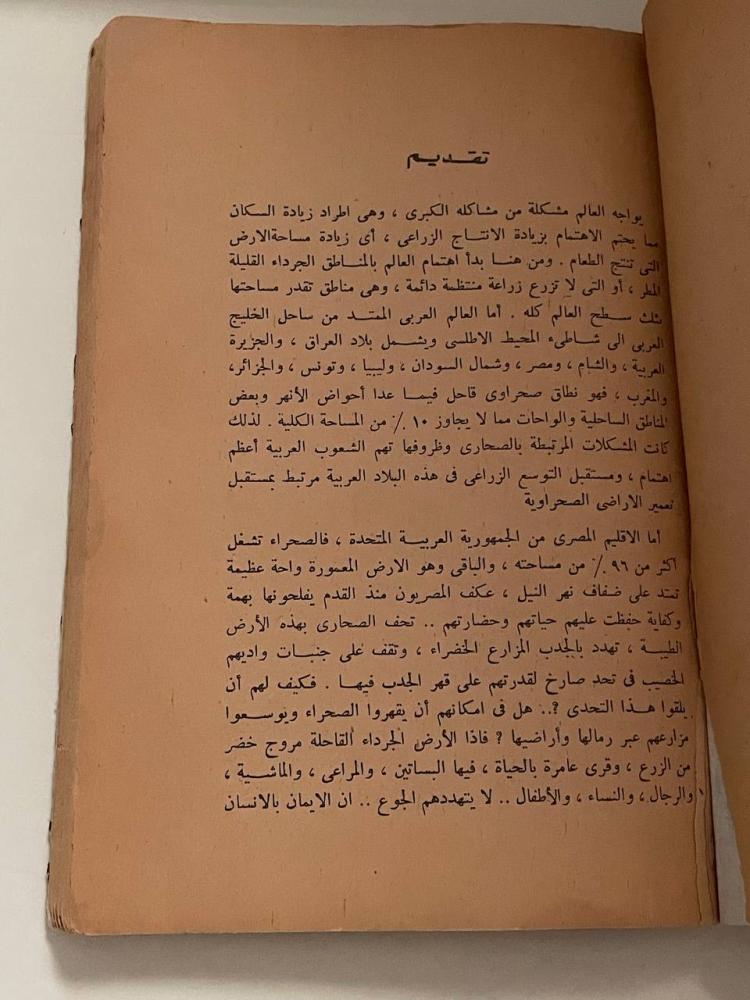 تقديم
يواجه العالم مشكلة من مشاكله الكبرى ، وهى اطراد زيادة السكان
مما يحتم الاهتمام بزيادة الانتاج الزراعى ، أى زيادة مساحة الارض
التى تنتج الطعام . ومن هنا بدأ اهتمام العالم بالمناطق الجرداء القليلة
المطر ، أو التى لا تزرع زراعة منتظمة دائمة ، وهى مناطق تقدر مساحتها
بثلث سطح العالم كله . أما العالم العربى الممتد من ساحل الخليج
العربى الى شاطىء المحيط الاطلسى ويشمل بلاد العراق ، والجزيرة
العربية ، والشام ، ومصر ، وشمال السودان ، وليبيا ، وتونس ، والجزائر،
والمغرب ، فهو نطاق صحراوى قاحل فيما عدا أحواض الأنهر وبعض
المناطق الساحلية والواحات مما لا يجاوز ١٠ ٪ من المساحة الكلية . لذلك
كانت المشكلات المرتبطة بالصحارى وظروفها تهم الشعوب العربية أعظم
اهتمام ، ومستقبل التوسع الزراعى فى هذه البلاد العربية مرتبط بمستقبل
تعمير الاراضى الصحراوية
أما الاقليم المصرى من الجمهورية العربية المتحدة ، فالصحراء تشغل
أكثر من ٩٦ ٪ من مساحته ، والباقى وهو الارض المعمورة واحة عظيمة
تمتد على ضفاف نهر النيل ، عكف المصريون منذ القدم يفلحونها بهمة
وكفاية حفظت عليهم حياتهم وحضارتهم .. تحف الصحارى بهذه الأرض
الطيبة ، تهدد بالجدب المزارع الخضراء ، وتقف على جنبات واديهم
الخصيب فى تحد صارخ لقدرتهم على قهر الجدب فيها . فكيف لهم أن
يلقوا هذا التحدى ؟.. هل فى امكانهم أن يقهروا الصحراء ويوسعوا
مزارعهم عبر رمالها وأراضيها ؟ فاذا الأرض الجرداء القاحلة مروج خضر
من الزرع ، وقرى عامرة بالحياة ، فيها البساتين ، والمراعى ، والماشية ،
والرجال ، والنساء ، والأطفال .. لا يتهددهم الجوع .. ان الايمان بالانسان